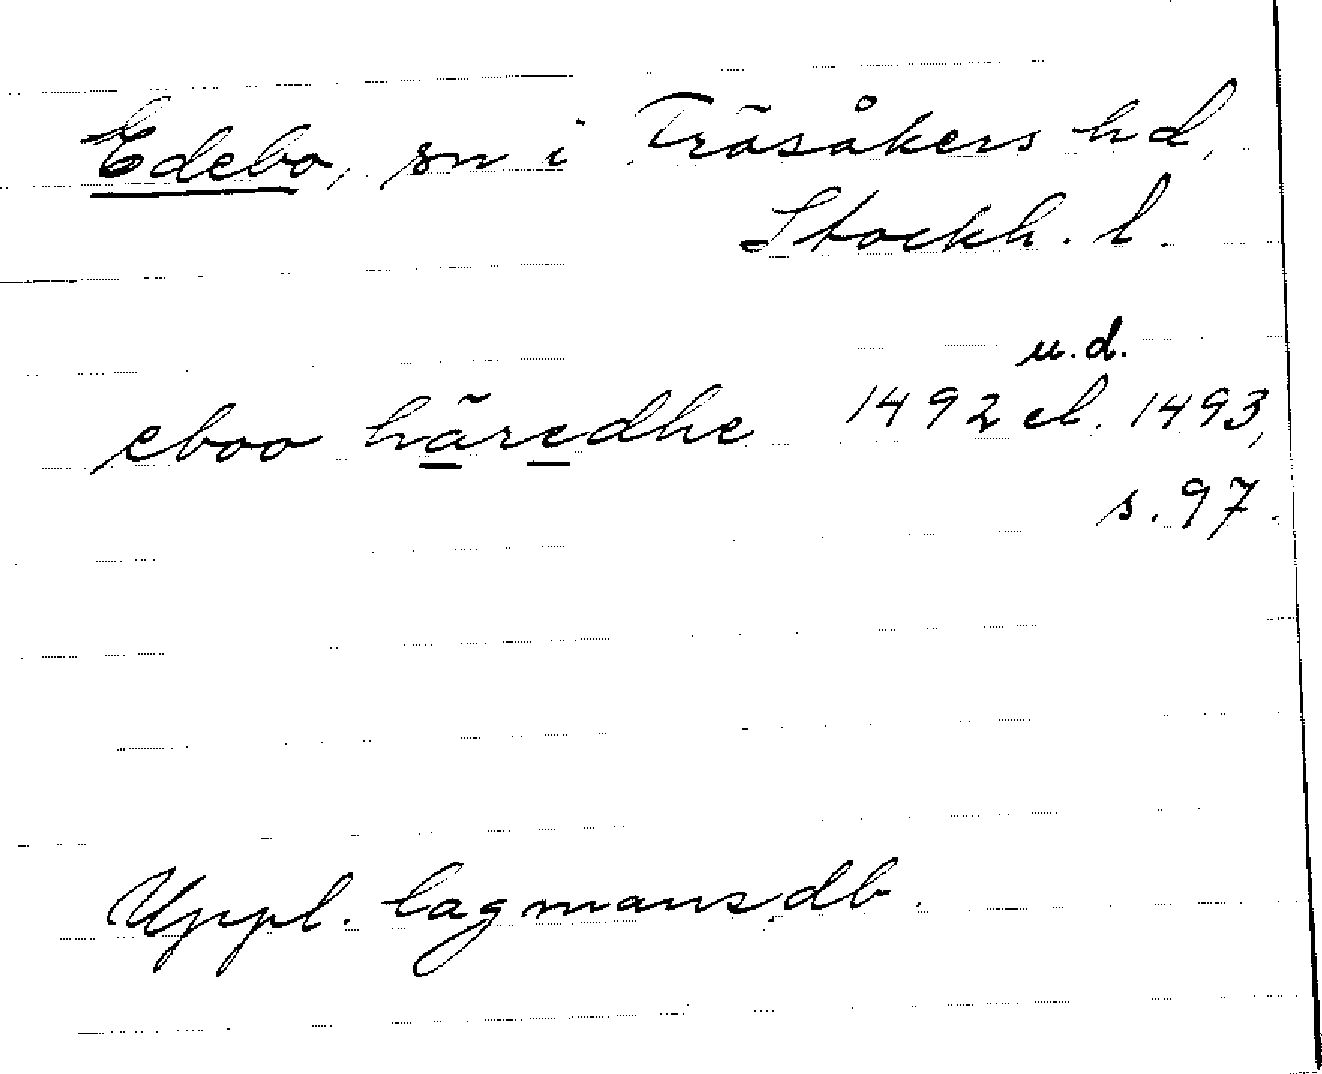 Edebo, sn i Fräsåkers hd,
Stockh. l.
u.d.
eboo häredhe 1492 el. 1493,
s. 97.
Uppl. lagmansdb.